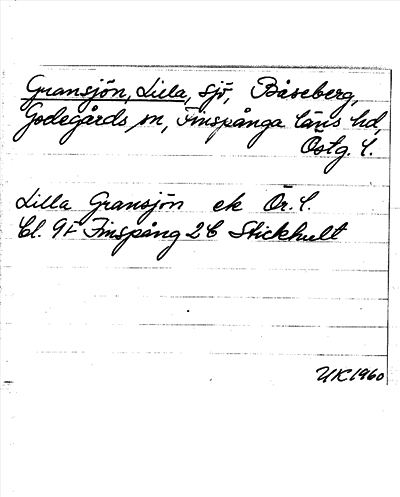 Gransjön, Lilla, sjö, Båseberg,
Godegårds sn, Finspånga läns hd,
Östg. l.
Lilla Gransjön ek Ör. l.
bl. 9F Finspång 2C Stickhult
UK1960